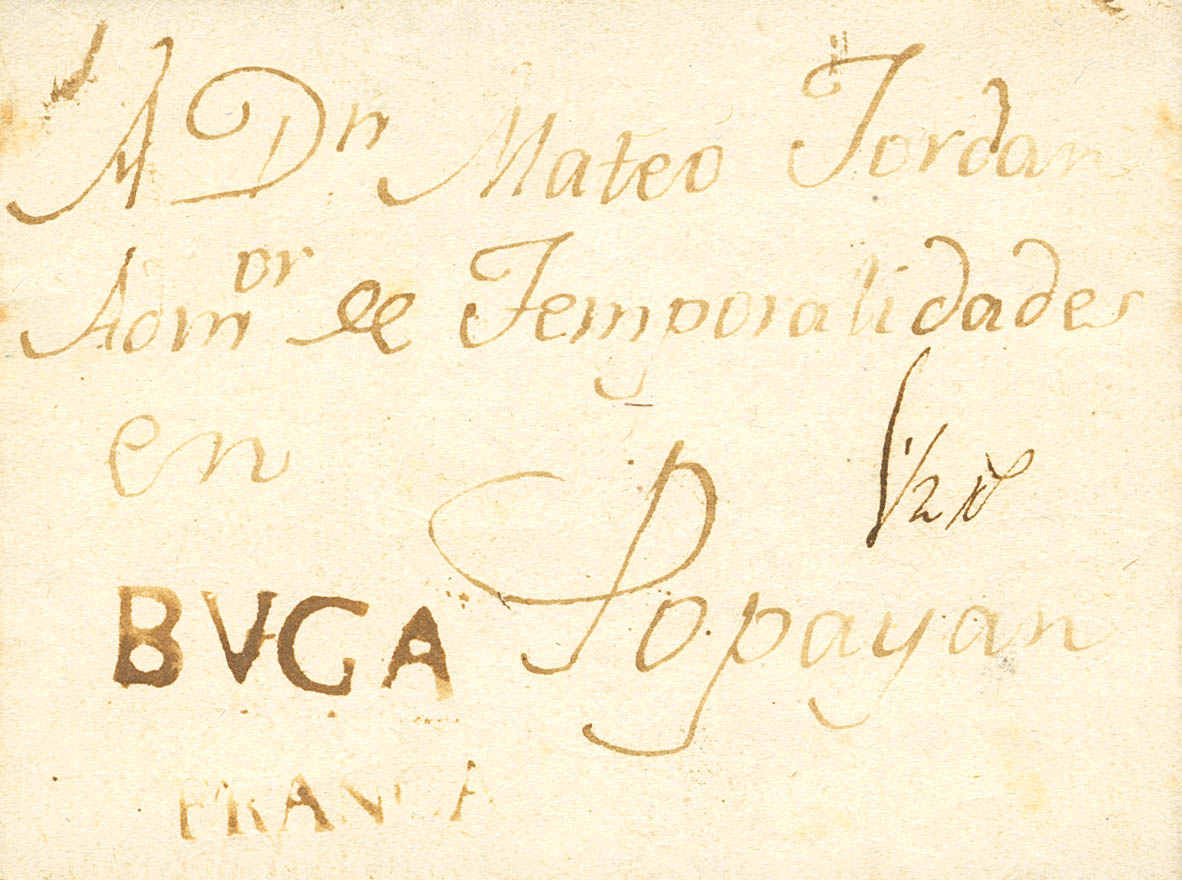 A Dn Mateo Jordan
Admor de Temporalidades
en
1/2 r
Popayan
BVGA
FRANCA